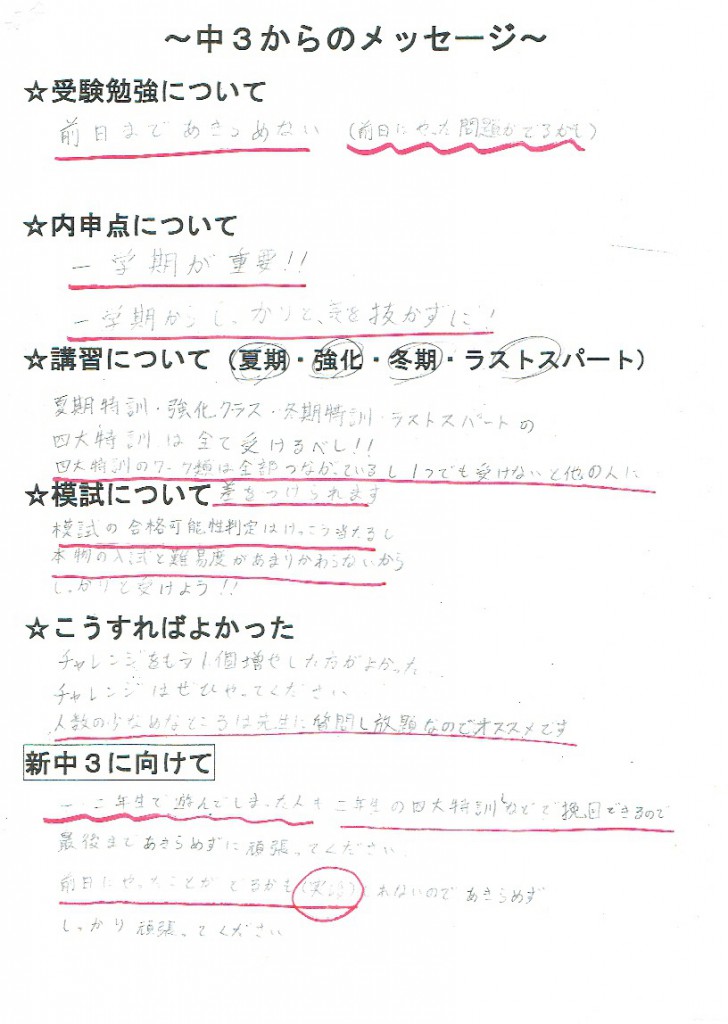 ～中３からのメッセージ～
☆受験勉強について
前日まであきらめない （前日にやった問題がでるかも）
☆内申点について
一学期が重要!!
一学期からしっかりと、気を抜かずに!
☆講習について（夏期・強化・冬期・ラストスパート）
夏期特訓・強化クラス・冬期特訓・ラストスパートの
四大特訓は全て受けるべし!!
四大特訓のワーク類は全部つながっているし1つでも受けないと他の人に
☆模試について 差をつけられます
模試の合格可能性判定はけっこう当たるし
本物の入試と難易度があまりかわらないから
しっかりと受けよう!!
☆こうすればよかった
チャレンジをもう1個増やした方がよかった
チャレンジはぜひやってください
人数の少なめなところは先生に質問し放題なのでオススメです
新中３に向けて
一、二年生で遊んでしまった人も三年生の四大特訓などで挽回できるので
最後まであきらめずに頑張ってください
前日にやったことがでるかも(実話)しれないのであきらめず
しっかり頑張ってください